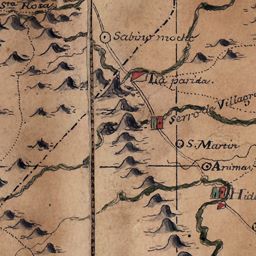 Sta Rosa
Sabino mocho
La parida
Serro de Villagr
S. Martin
Animas
Hid